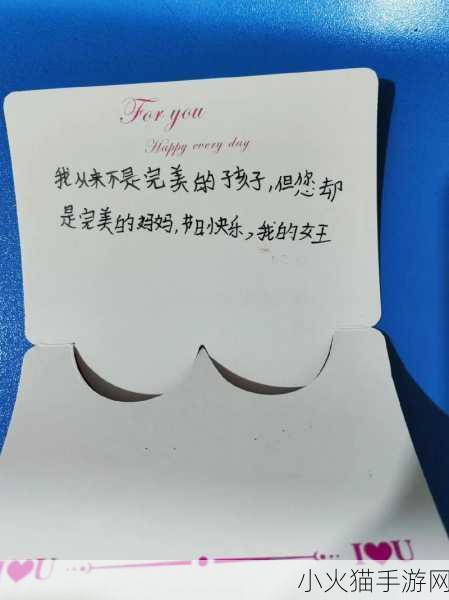 For you
Happy every day
我从来不是完美的孩子,但您却
是完美的妈妈,节日快乐,我的女王
I❤U
I❤U
小火猫手游网